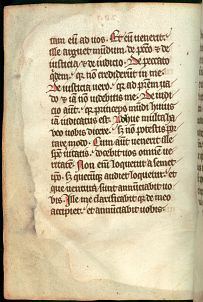 tam eū ad vos. Et cū venerit
ille arguet mūdum de pctō ⁊ de
iusticia ⁊ de iudicio. De peccato
qdem. qr nō crediderūt in me.
De iusticia vero. qr ad prem̄ va
do ⁊ iā nō videbitis me. De iudi
cio aūt. qr princeps mūdi huius
iam iudicatus est. Adhuc multa ha
beo vobis dicere. sꝫ nō potestis por
tare modo. Cum aūt venerit ille
sps veritatis. docebit vos omnē ve
ritatē. Non eni loquetur a semet
ipo. sꝫ quecūqꝫ audiet loquetur. et
que ventura sunt annūciabit vo
bis. Ille me clarificabit qr de meo
accipiet. et annūciabit vobis.